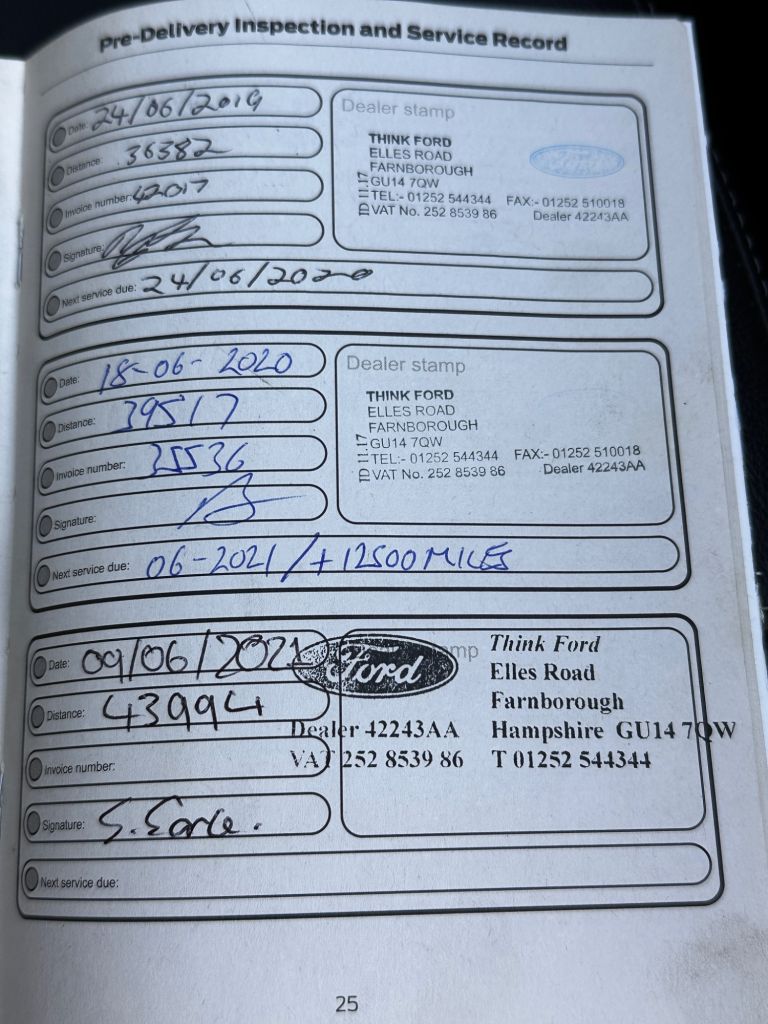 Pre-Delivery Inspection and Service Record
Date: 24/06/2019
Distance: 36382
Invoice number: 42017
Signature:
Next service due: 24/06/2020
Dealer stamp
THINK FORD
ELLES ROAD
FARNBOROUGH
GU14 7QW
TEL:- 01252 544344 FAX:- 01252 510018
VAT No. 252 8539 86 Dealer 42243AA
ID 11.17
Ford
Date: 18-06-2020
Distance: 39517
Invoice number: 35536
Signature:
Next service due: 06-2021/+12500 MILES
Dealer stamp
THINK FORD
ELLES ROAD
FARNBOROUGH
GU14 7QW
TEL:- 01252 544344 FAX:- 01252 510018
VAT No. 252 8539 86 Dealer 42243AA
ID 11.17
Date: 09/06/2021
Distance: 43994
Invoice number:
Signature: S. Earle.
Next service due:
Ford
Dealer 42243AA
VAT 252 8539 86
Think Ford
Elles Road
Farnborough
Hampshire GU14 7QW
T 01252 544344
25